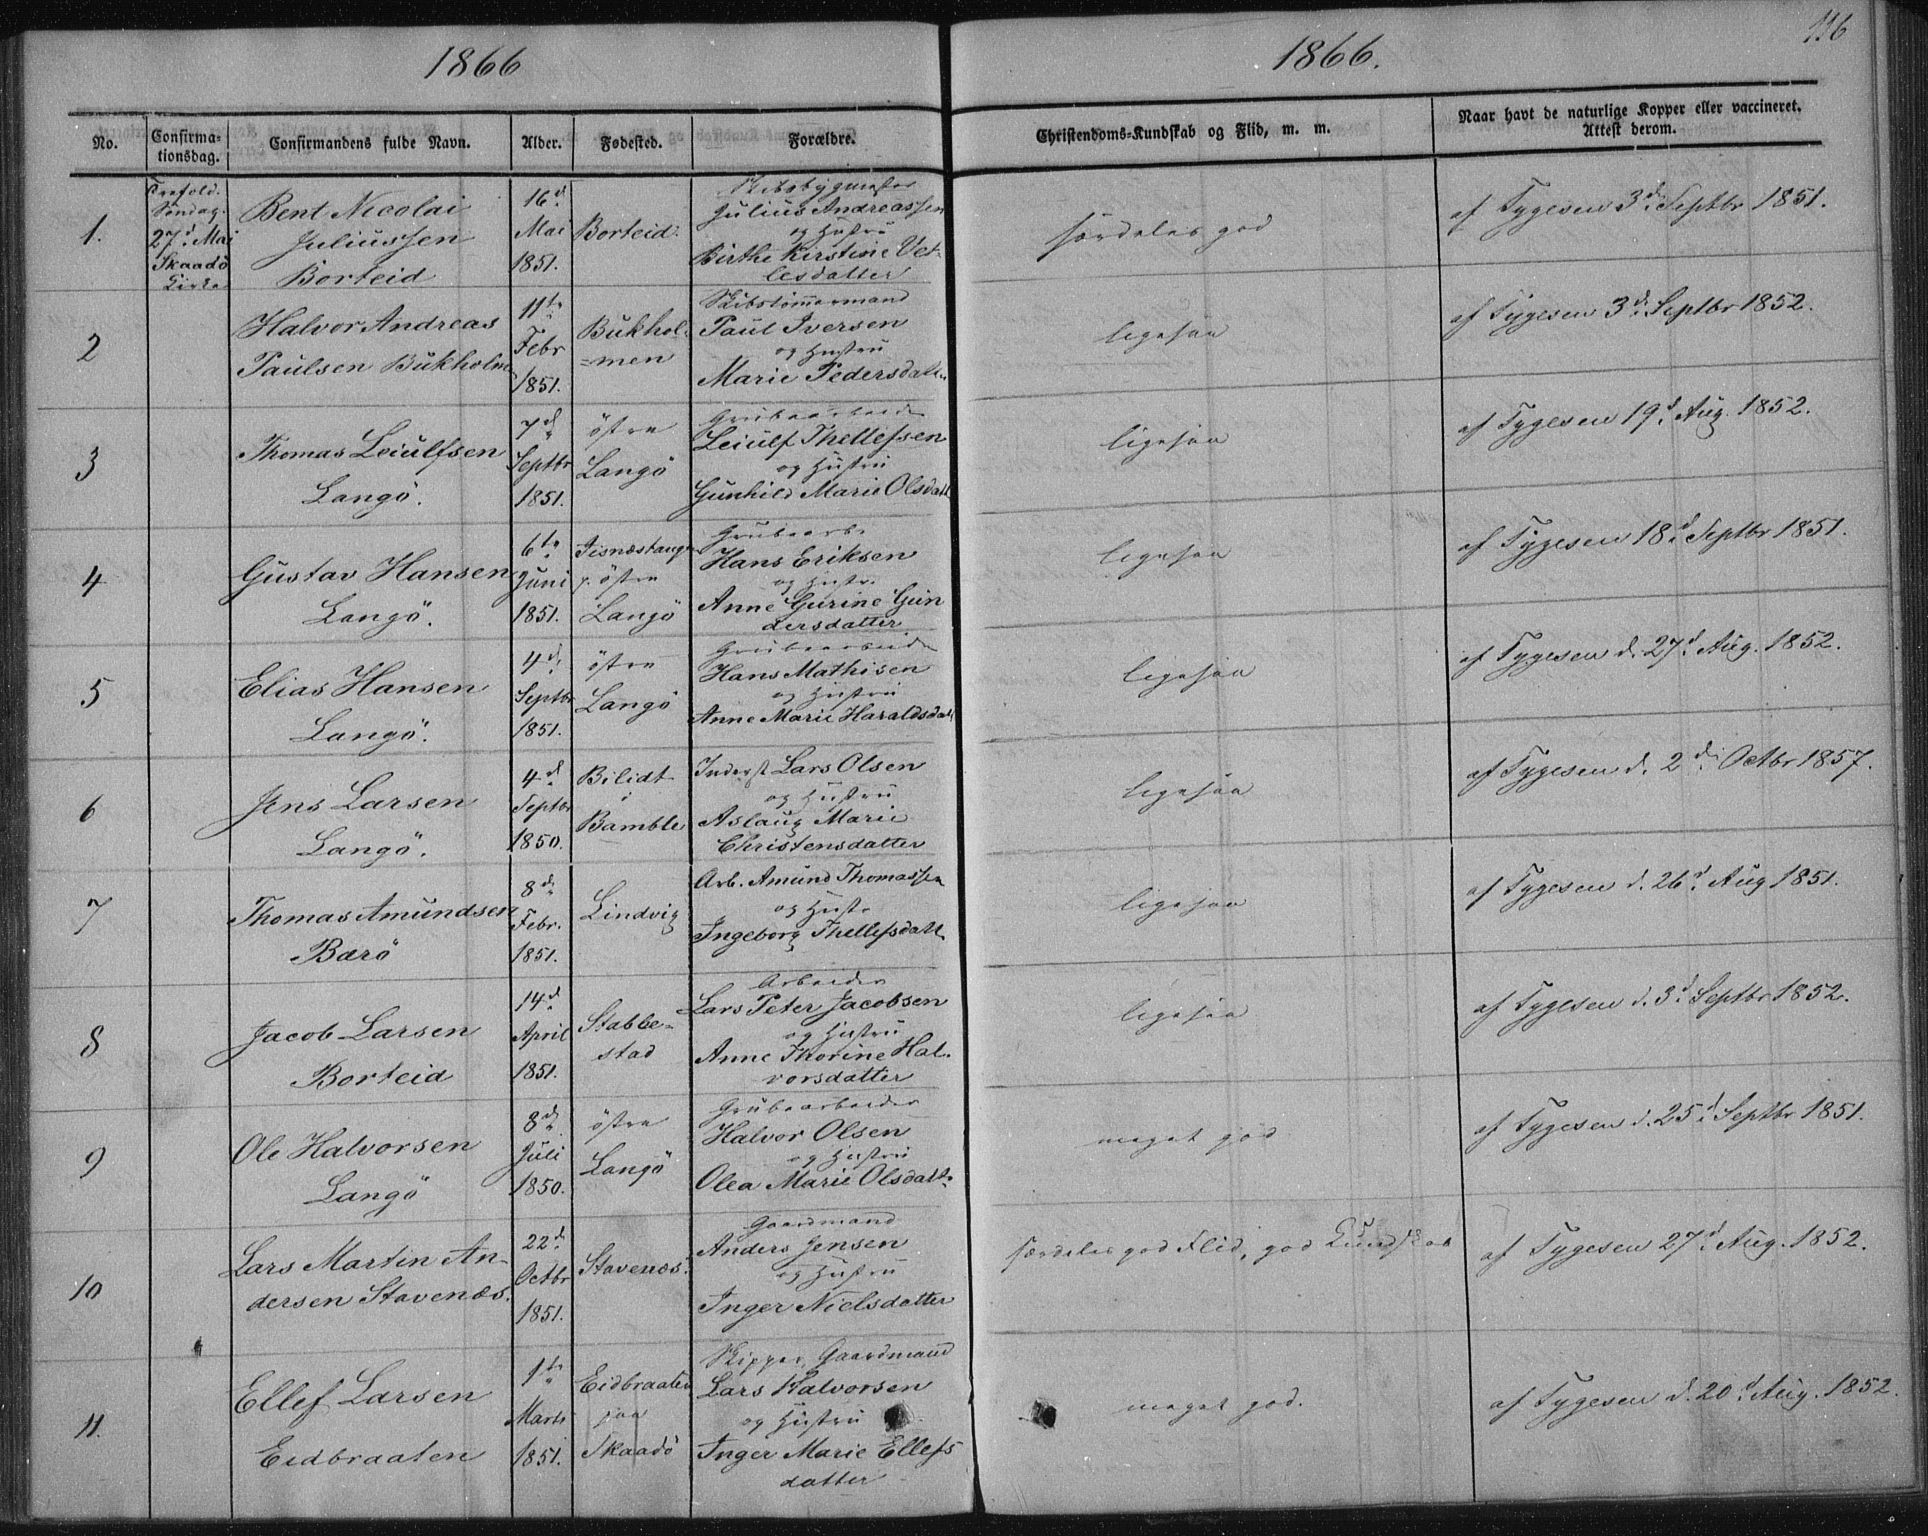 116
1866
1866.
No.
Confirma-
tionsdag.
Confirmandens fulde Navn.
Alder.
Fødested.
Forældre.
Christendoms-Kundskab og Flid, m. m.
Naar havt de naturlige Kopper eller vaccineret.
Attest derom.
1.
Trefold.
Søndag.
27d Mai
Skaadö
Kirke
Bent Nicolai
Juliussen
Borteid
16d
Mai
1851.
Borteid.
Skibsbygmester
Julius Andreassen
og Hustru
Birthe Kirstine Vet-
lesdatter
særdeles god
af Tygesen 3d Septbr 1851.
2
Halvor Andreas
Paulsen Bükholm
11te
Febr
1851.
Bükhol-
=men
Skibstömmermand
Paul Iversen
og Hustru
Marie Pedersdatt.
ligesaa
af Tygesen 3d Septbr 1852.
3
Thomas Leiulfsen
Langö.
7d
Septbr
1851.
östre
Langö
Grubearbeider
Leiulf Thellefsen
og Hustru
Gunhild Marie Olsdatt
ligesaa
af Tygesen 19d Aug. 1852.
4
Gustav Hansen
Langö.
6te
Juni
1851.
p. östre
Langö
Grubearb.
Hans Eriksen
og Hustr.
Anne Gurine Gun
dersdatter
ligesaa
af Tygesen 18d Septbr 1851.
5
Elias Hansen
Langö.
4d
Septbr
1851.
östre
Langö
Grubearbeider
Hans Mathisen
og Hustru
Anne Marie Haraldsdatt
ligesaa
af Tygesen d. 27d Aug. 1852.
6
Jens Larsen
Langö.
4d
Septbr
1850.
Bilidt
i
Bamble
Inderst Lars Olsen
og Hustru
Aslaug Marie
Christensdatter
ligesaa
af Tygesen d. 2d Octbr 1857.
7
Thomas Amundsen
Barö
8d
Febr.
1851.
Lindvig
Arb. Amund Thomassen
og Hustr.
Ingeborg Thellefsdatt.
ligesaa
af Tygesen d. 26d Aug 1851.
8
Jacob Larsen
Borteid
14d
April
1851.
Stabbe-
stad
Arbeider
Lars Peter Jacobsen
og Hustru
Anne Thorine Hal-
vorsdatter
ligesaa
af Tygesen d. 3d Septbr 1852.
9
Ole Halvorsen
Langö
8d
Juli
1850.
östre
Langö
Grubearbeider
Halvor Olsen
og Hustru
Olea Marie Olsdatt.
meget god
af Tygesen d. 25d Septbr 1851.
10
Lars Martin An-
dersen Stavenæs.
22d
Octbr
1851.
Stavenæs.
Gaardmand
Anders Jensen
og Hustru
Inger Nielsdatter
særdeles god Flid, god Kundskab
af Tygesen 27d Aug. 1852.
11.
Ellef Larsen
Eidbraaten
1te
Marts
1851.
Eidbraaten
paa
Skaadö
Skipper, Gaardmand
Lars Halvorsen
og Hustru
Inger Marie Ellefs
datter
meget god.
af Tygesen d. 20d Aug. 1852.